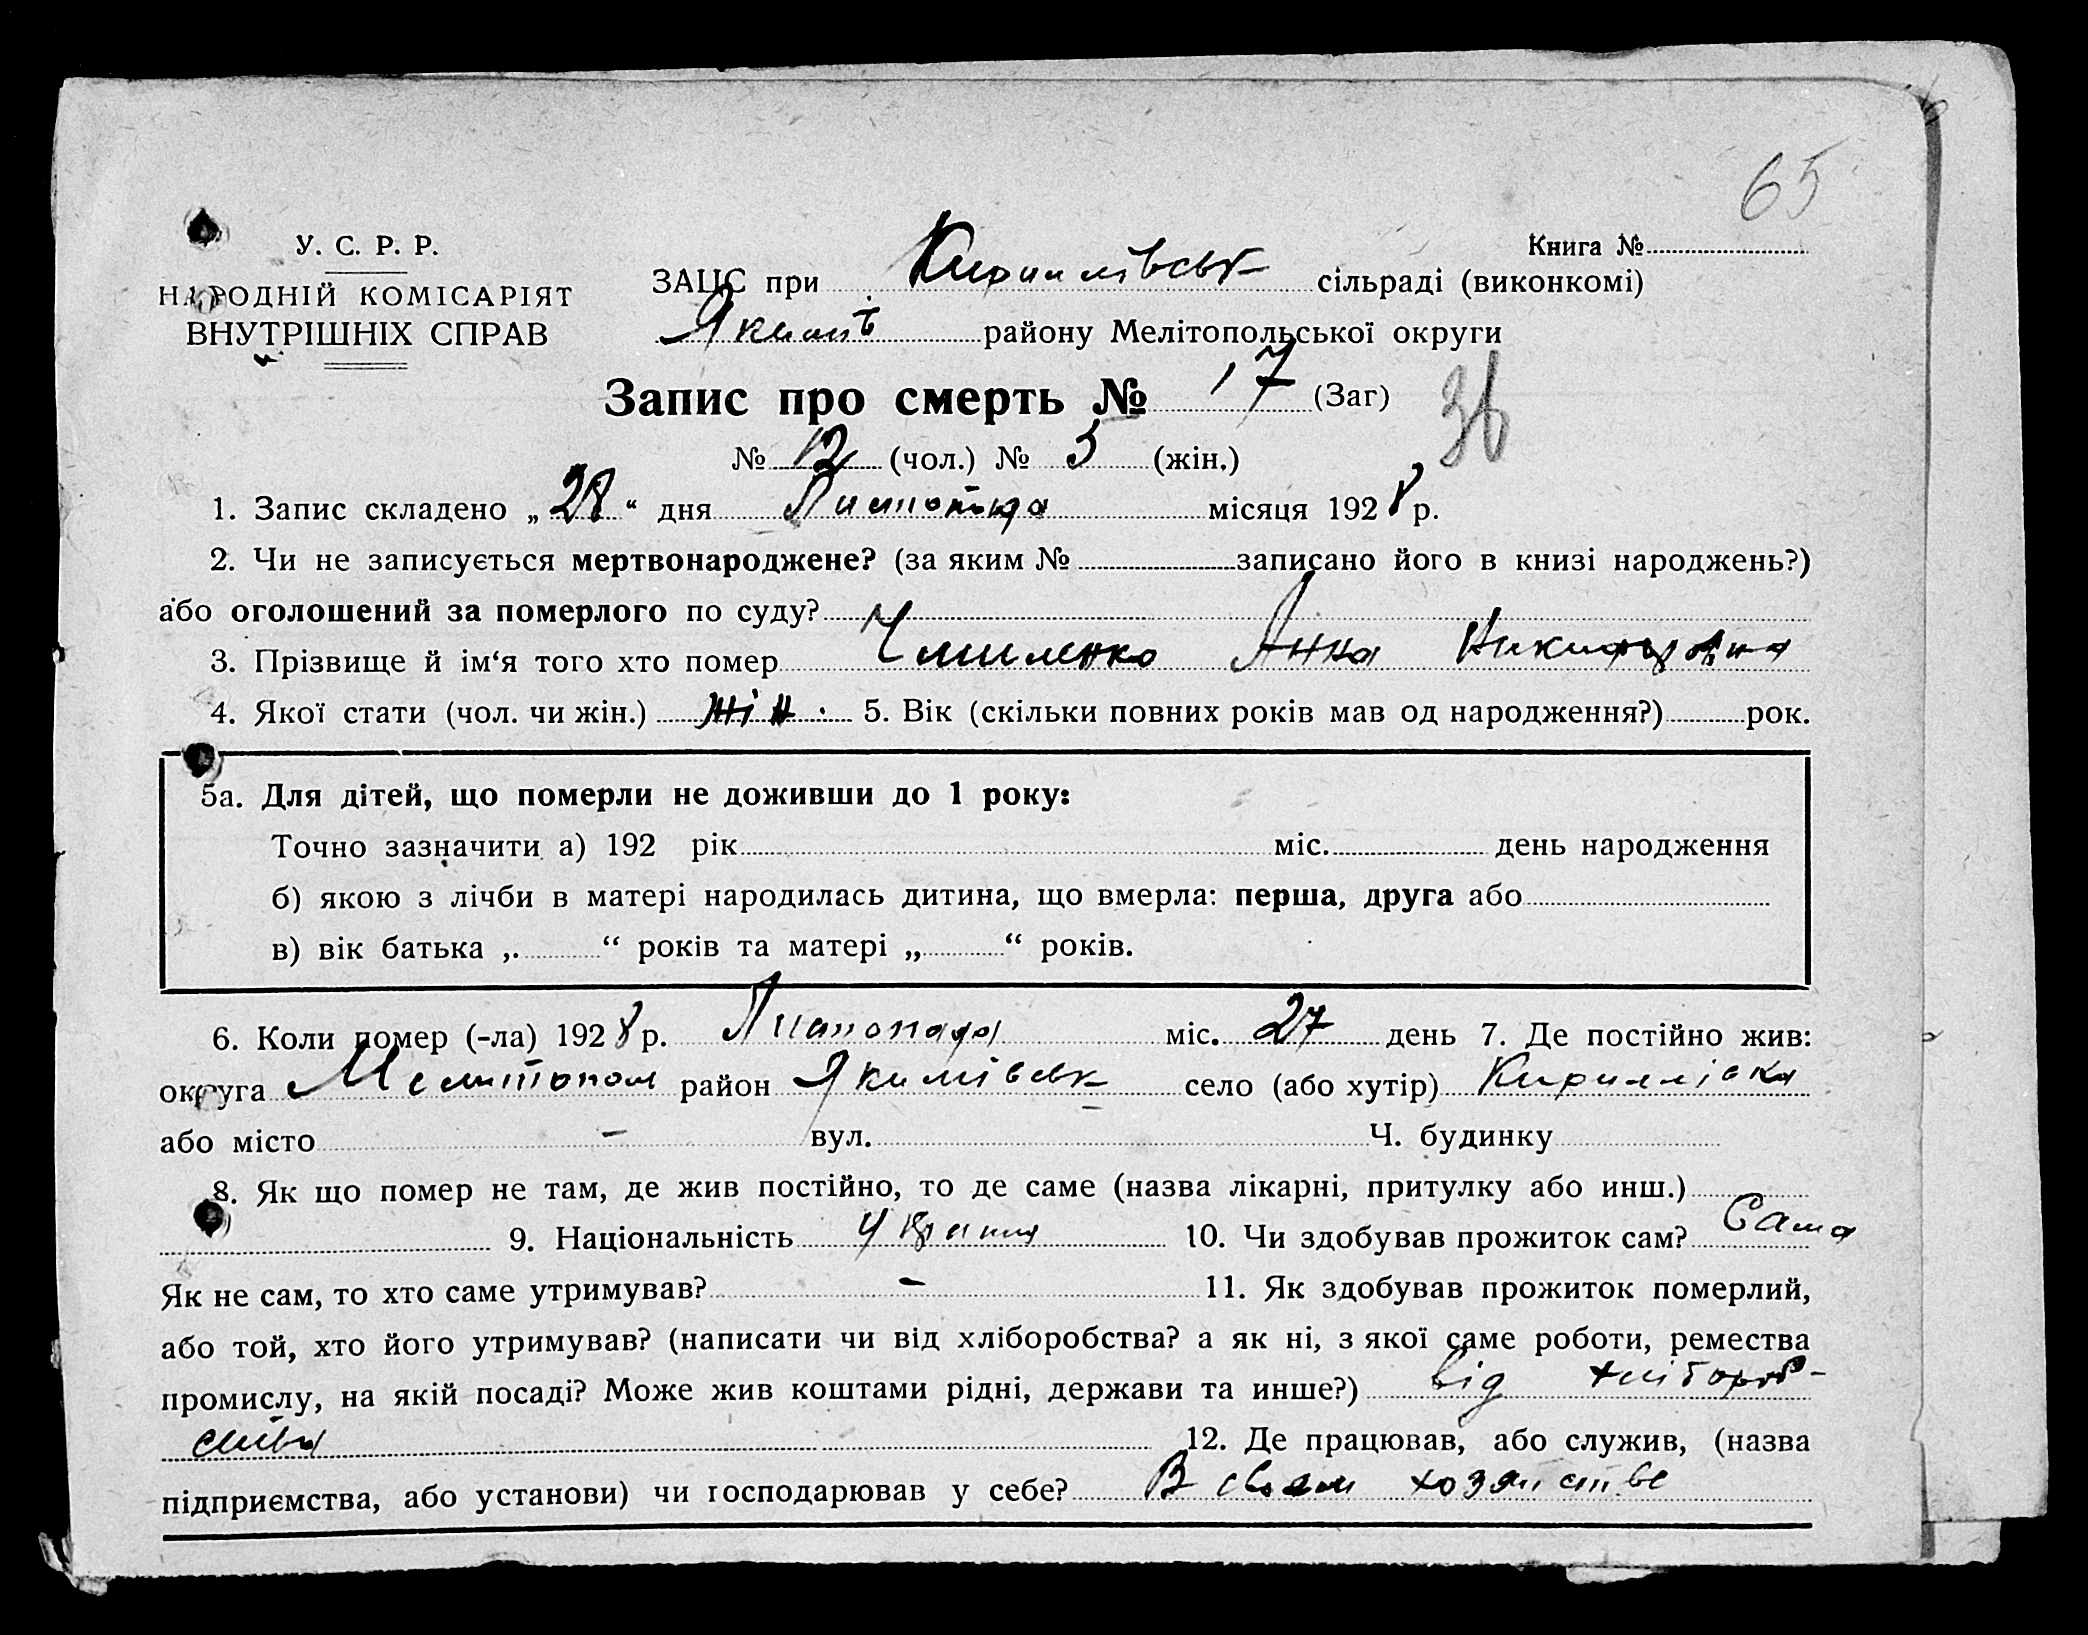 65
У. С. Р. Р.
НАРОДНІЙ КОМІСАРІЯТ
ВНУТРІШНІХ СПРАВ
Книга №
ЗАЦС при Кириллівськ сільраді (виконкомі)
Якимів району Мелітопольської округи
Запис про смерть № 17 (Заг)
36
№ 12 (чол.) № 5 (жін.)
1. Запис складено „28“ дня Листопада місяця 1928 р.
2. Чи не записується мертвонароджене? (за яким № записано його в книзі народжень?)
або оголошений за померлого по суду?
3. Прізвище й ім‘я того хто помер Анна
4. Якої стати (чол. чи жін.) жін. 5. Вік (скільки повних років мав од народження?) рок.
5а. Для дітей, що померли не доживши до 1 року:
Точно зазначити а) 192 рік міс. день народження
б) якою з лічби в матері народилась дитина, що вмерла: перша, друга або
в) вік батька „ “ років та матері „ “ років.
6. Коли помер (-ла) 1928 р. Листопада міс. 27 день 7. Де постійно жив:
округа Мелитопол район Якимівськ село (або хутір) Кириллівка
або місто – вул. Ч. будинку
8. Як що помер не там, де жив постійно, то де саме (назва лікарні, притулку або инш.)
9. Національність 10. Чи здобував прожиток сам? Сама
Як не сам, то хто саме утримував? – 11. Як здобував прожиток померлий,
або той, хто його утримував? (написати чи від хліборобства? а як ні, з якої саме роботи, ремества
промислу, на якій посаді? Може жив коштами рідні, держави та инше?) від хлібороб-
ства 12. Де працював, або служив, (назва
підприємства, або установи) чи господарював у себе? В своем хозяистве